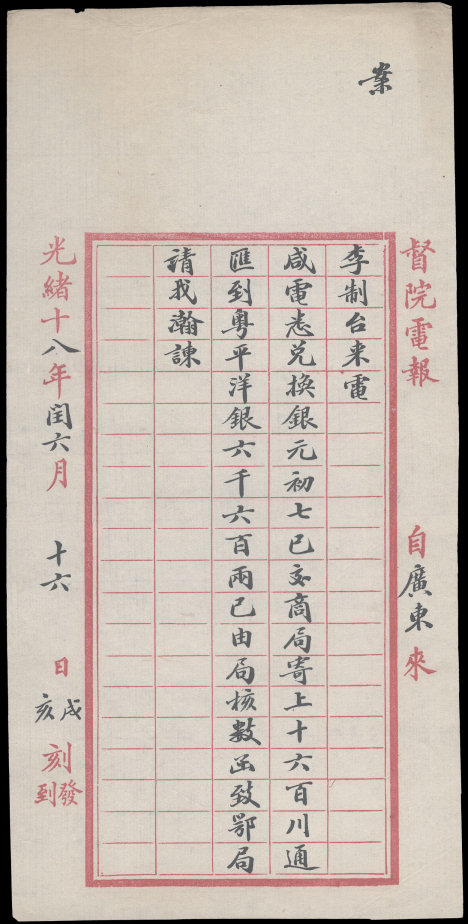 案
督院電報 自廣東來
李制台來電
咸電悉兑換銀元初七已交商局寄上十六百川通
匯到粵平洋銀六千六百兩已由局核數函致鄂局
請我瀚諫
光緒十八年閏六月 十六 日 戌亥 刻 發到